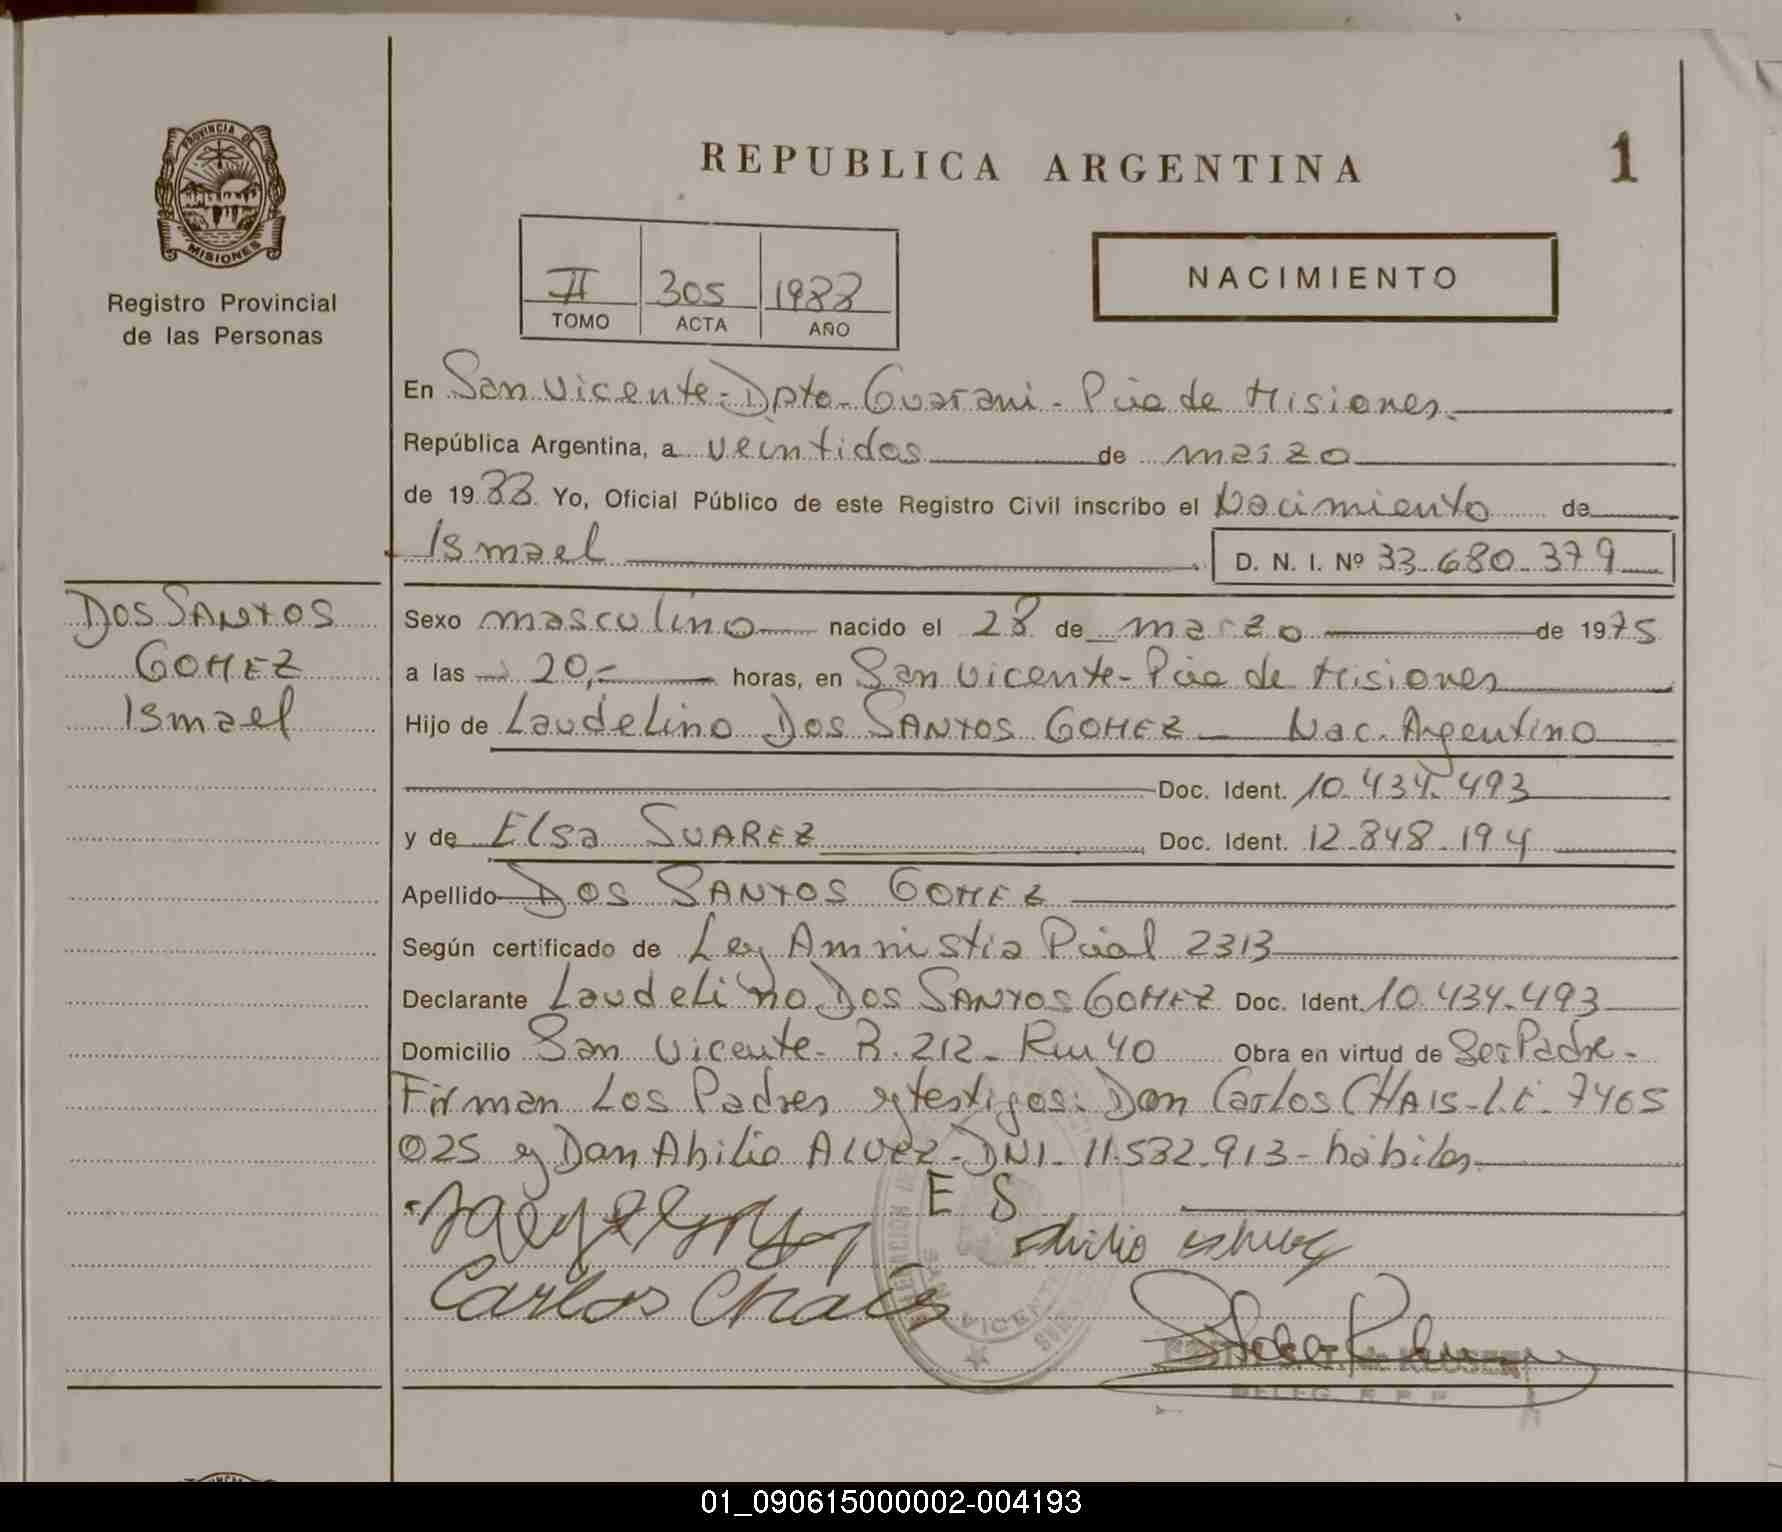 PROVINCIA DE
MISIONES
Registro Provincial
de las Personas
REPUBLICA ARGENTINA
1
II 305 1988
TOMO ACTA AÑO
NACIMIENTO
En San Vicente - Dpto - Guarani - Pcia de Misiones.
República Argentina, a veintidos de marzo
de 1988 Yo, Oficial Público de este Registro Civil inscribo el Nacimiento de
Ismael D. N. I. Nº 33.680.379
DOS SANTOS
GOMEZ
Ismael
Sexo masculino nacido el 28 de marzo de 1975
a las 20,- horas, en San Vicente - Pcia de Misiones
Hijo de Laudelino DOS SANTOS GOMEZ - Nac. Argentino
Doc. Ident. 10.434.493
y de Elsa SUAREZ Doc. Ident. 12.848.194
Apellido DOS SANTOS GOMEZ
Según certificado de Ley Amnistia Pcial 2313
Declarante Laudelino DOS SANTOS GOMEZ Doc. Ident. 10.434.493
Domicilio San Vicente - R. 212 - Km 40 Obra en virtud de Ser Padre -
Firman Los Padres y testigos: Don Carlos CHAIS - L.E. 7465
025 y Don Abilio ALVEZ - DNI - 11.532.913 - hábiles.
E S
Carlos Chais
VICENTE
DELEG. R. P. P.
01_090615000002-004193